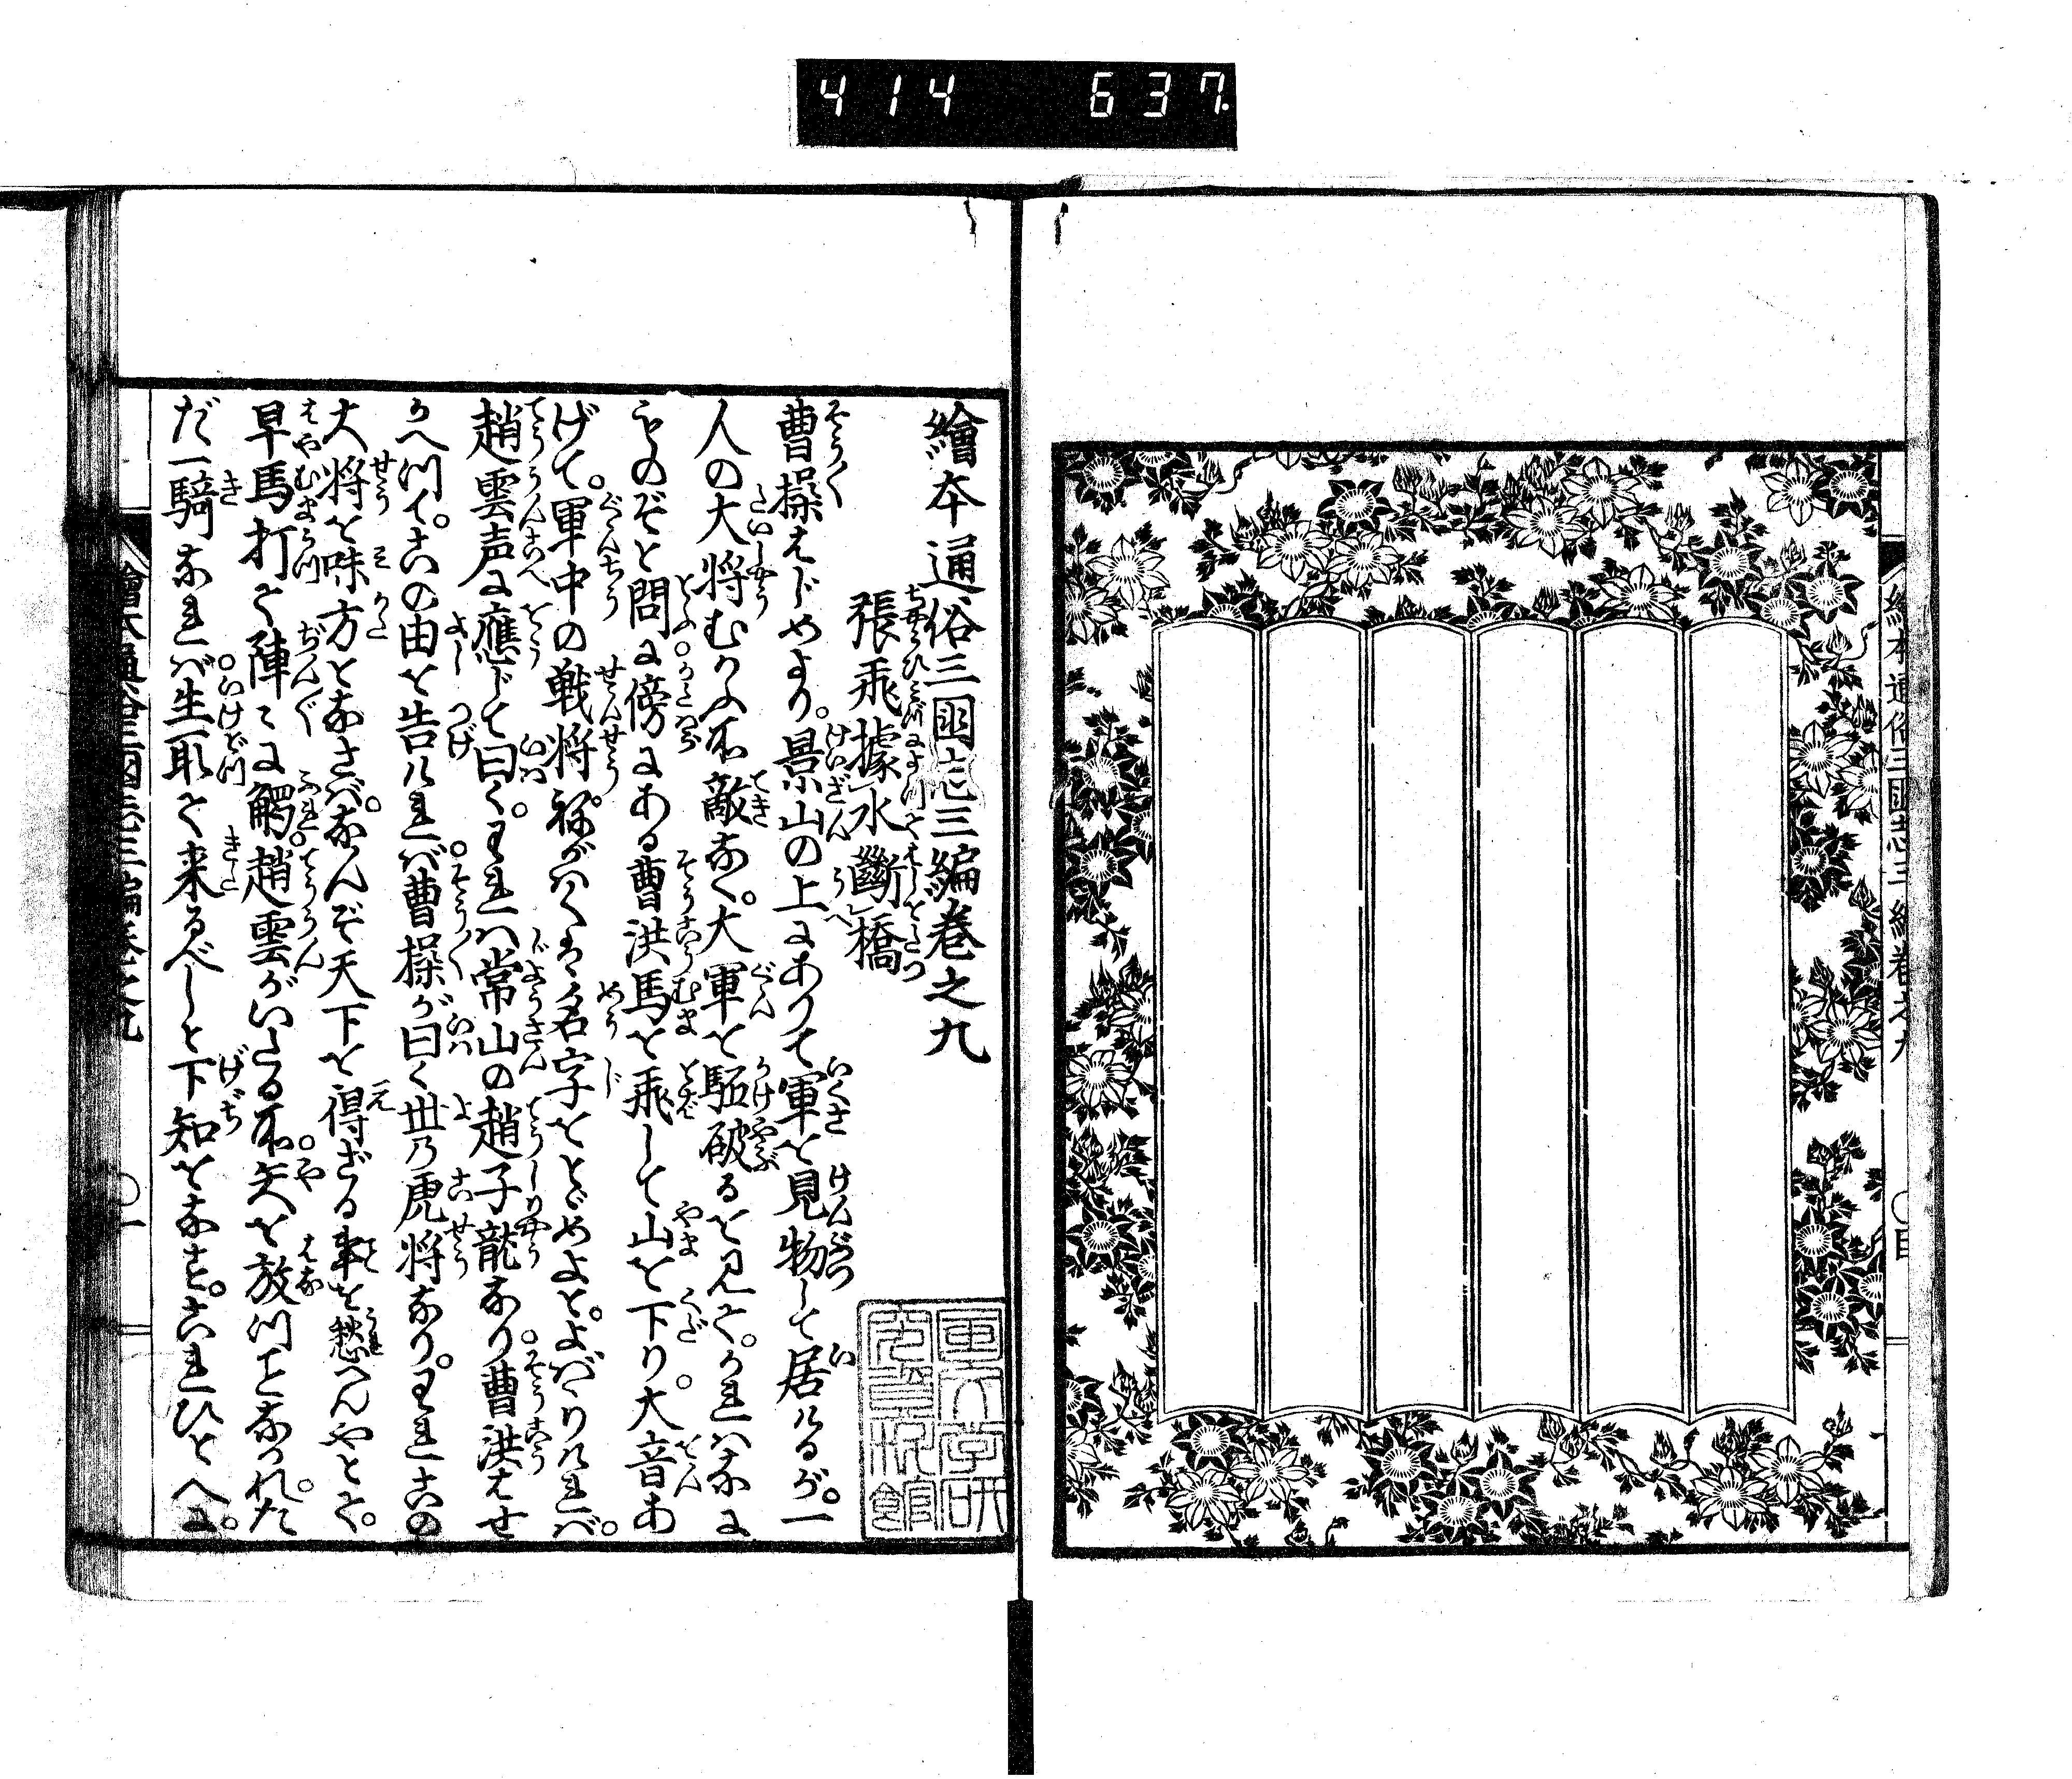 414 637
繪本通俗三國志三編巻之九
張飛據水斷橋
曹操はじめより。景山の上にありて軍を見物して居けるが。一
人の大将むかふ所敵なく。大軍を駈破るを見て。かれハなに
ものぞと問に傍にある曹洪馬を飛して山を下り。大音あ
げて。軍中の戦将。ねがハくは名字をとゞめよと。よばゝりけれバ。
趙雲声に應じて曰く。われハ常山の趙子龍なり。曹洪はせ
かへつて。この由を告けれバ。曹操が曰く世の虎将なり。われこの
大将を味方となさバ。なんぞ天下を得ざる事を愁へんやとて。
早馬打て陣〻に觸。趙雲がいたる所。矢を放つことなかれ。た
だ一騎なれバ。生取て来るべしと下知をなす。これひとへに。
繪本通俗三國志三編巻之九
〇一
繪本通俗三國志三編巻之九
〇目